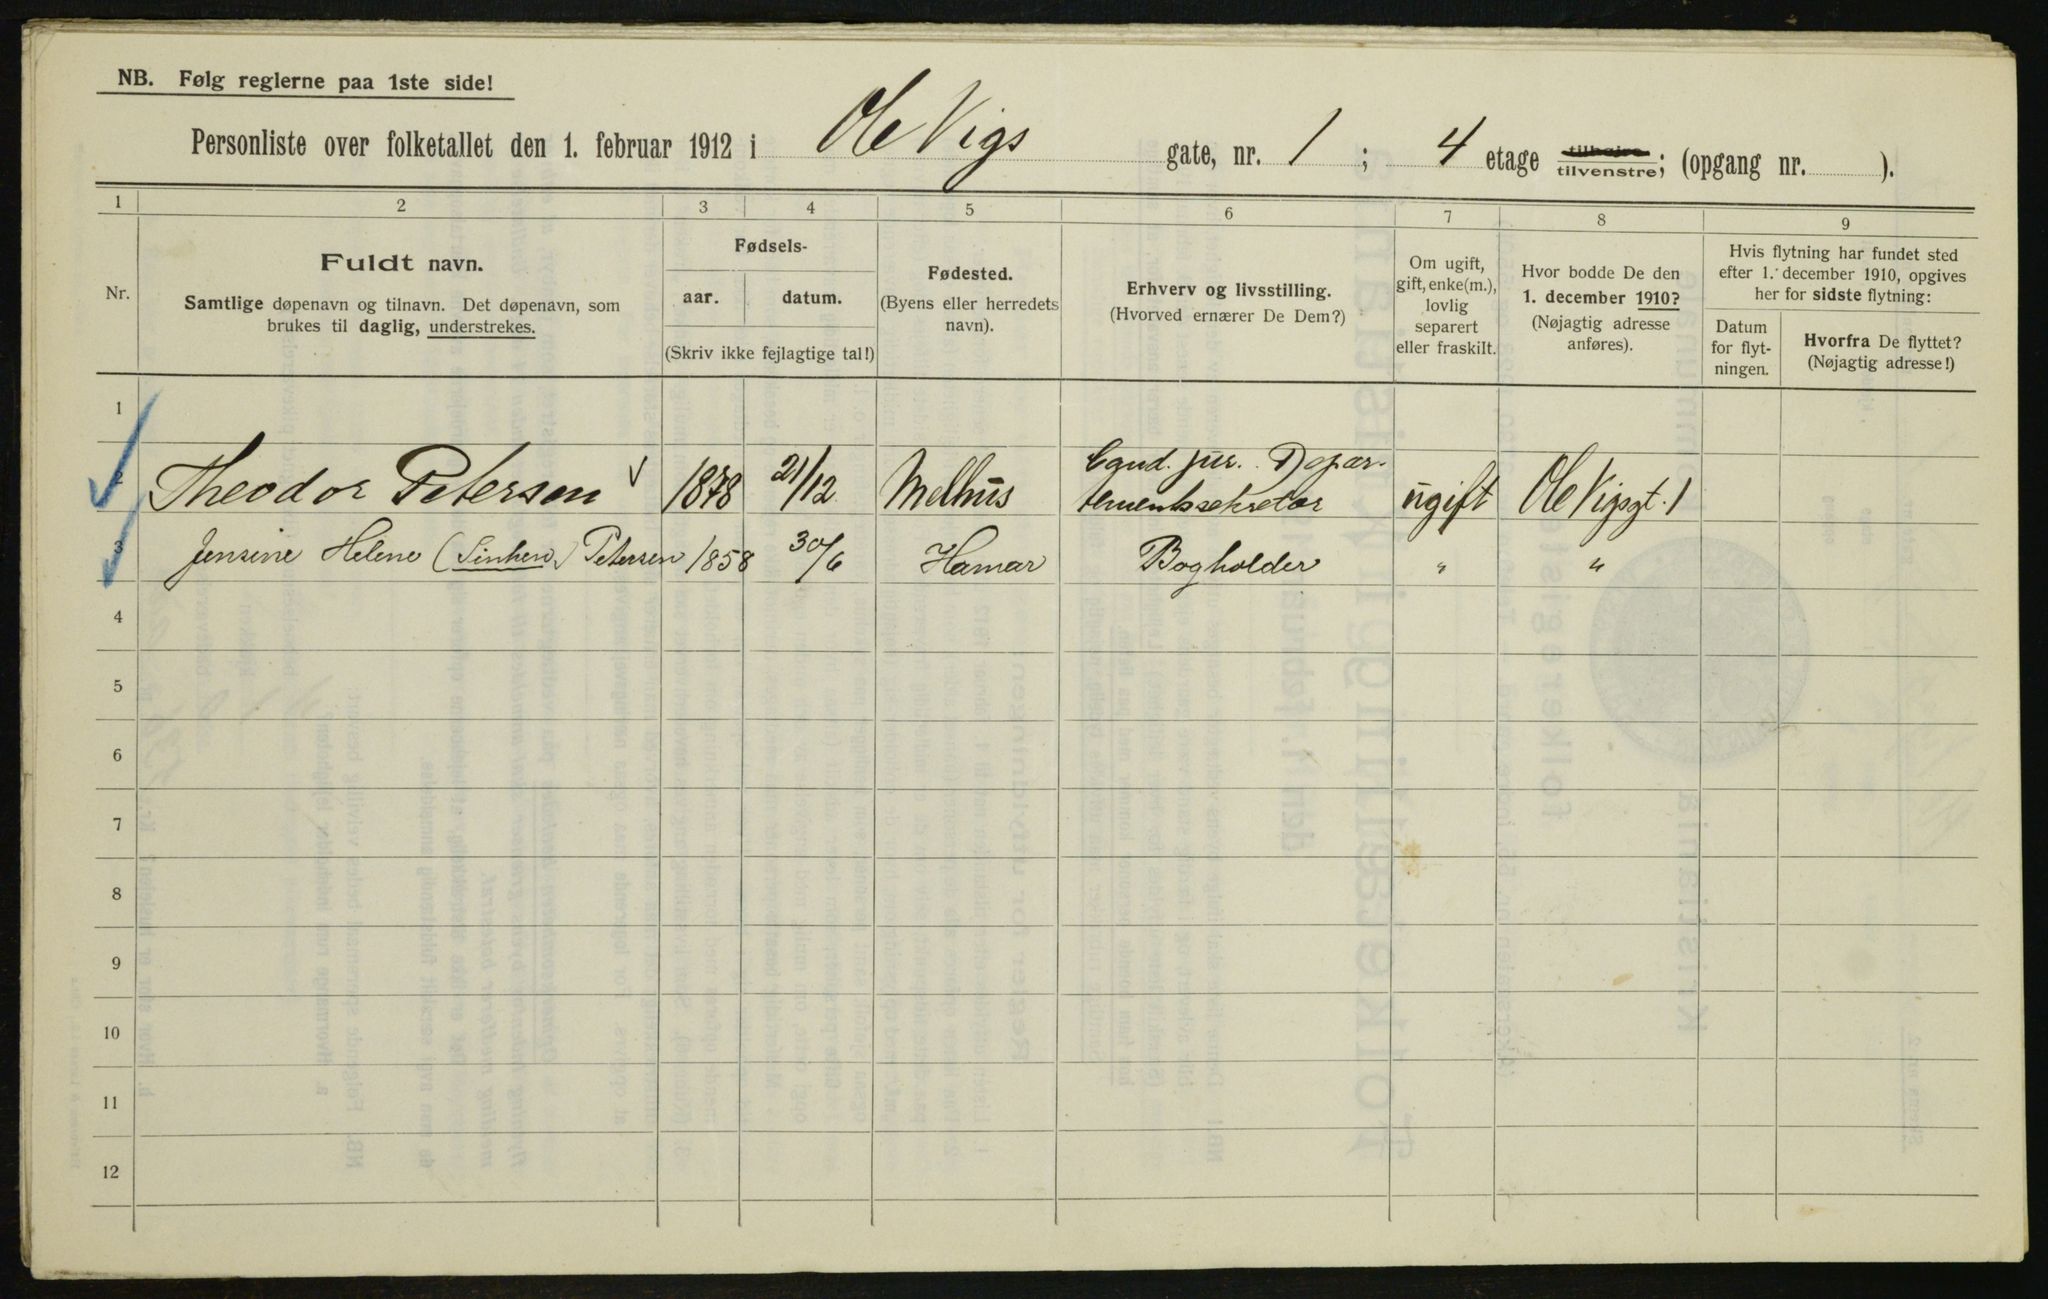 NB. Følg reglerne paa 1ste side!
Personliste over folketallet den 1. februar 1912 i Ole Vigs gate, nr. 1; 4 etage tilhøjre tilvenstre; (opgang nr. ).
1 2 3 4 5 6 7 8 9
Nr.
Fuldt navn.
Samtlige døpenavn og tilnavn. Det døpenavn, som
brukes til daglig, understrekes.
Fødsels-
aar. datum.
(Skriv ikke fejlagtige tal!)
Fødested.
(Byens eller herredets
navn).
Erhverv og livsstilling.
(Hvorved ernærer De Dem?)
Om ugift,
gift, enke(m.),
lovlig
separert
eller fraskilt.
Hvor bodde De den
1. december 1910?
(Nøjagtig adresse
anføres).
Hvis flytning har fundet sted
efter 1. december 1910, opgives
her for sidste flytning:
Datum
for flyt-
ningen.
Hvorfra De flyttet?
(Nøjagtig adresse!)
1
2 Theodor Petersen 1878 21/12 Melhus Cand. jur. Depar-
tementssekretær ugift Ole Vigsgt. 1
3 Jensine Helene Petersen 1858 30/6 Hamar Bogholder " "
4
5
6
7
8
9
10
11
12